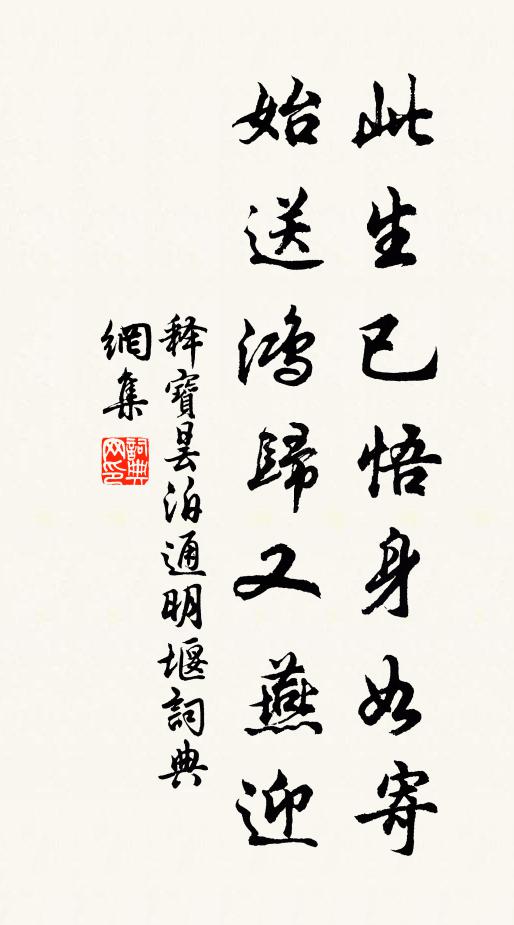 此生已悟身如寄
始送鴻歸又燕迎
释寶昙泊通明堰詞典
網集
詞典
网印